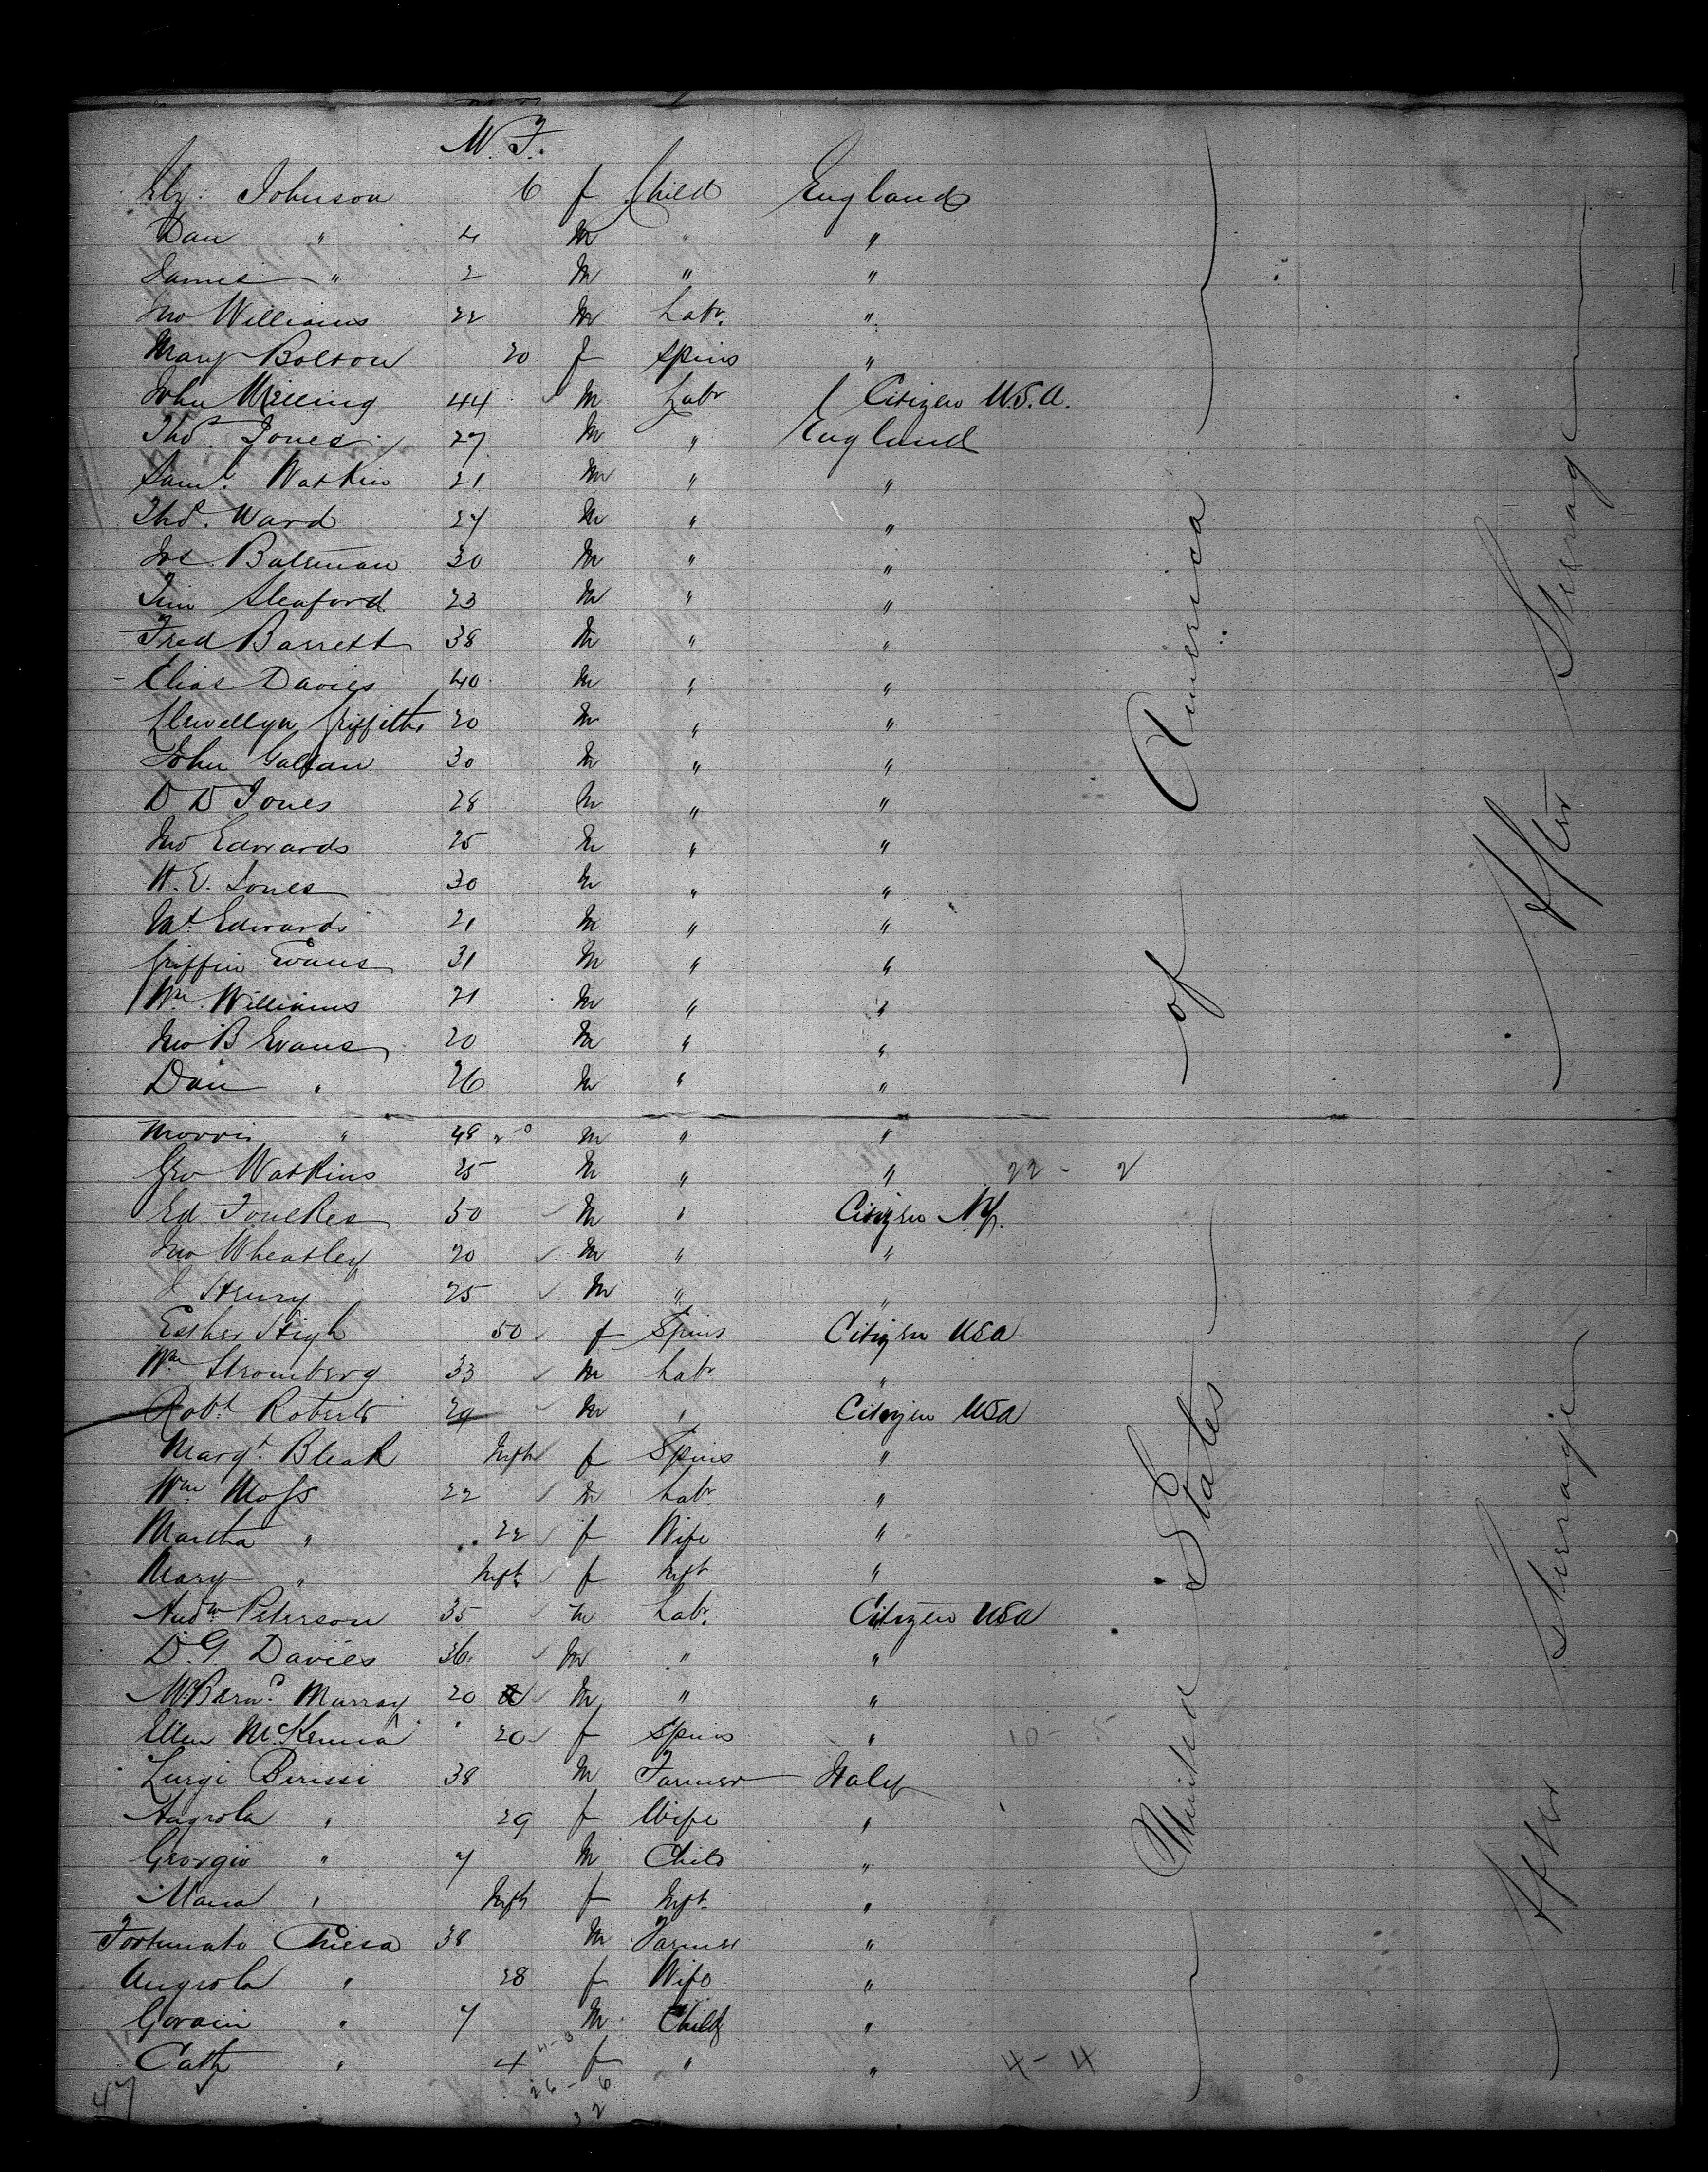 M. F.
Elz: Johnson 6 f Child England
Dan " 4 M " "
James " 2 M " "
Jno Williams 22 M Labr. "
Mary Bolton 20 f Spins "
John Melling 44 M Labr Citizen U.S.A.
Thos. Jones 27 M " England
Saml. Watkin 21 M " "
Thos. Ward 27 M " "
Jos Bateman 30 M " "
Jim Sleaford 23 M " "
Fred Barrett 38 M " "
Elias Davies 40 M " "
Llewellyn Griffiths 20 M " "
John 30 M " "
D D Jones 28 M " "
Jno Edwards 25 M " "
W. E. Jones 30 M " "
Edwards 21 M " "
Griffin Evans 31 M " "
Wm Williams 21 M " "
Jno B Evans 20 M " "
Dan " 26 M " "
Morris " 48 M " "
Geo Watkins 25 M " " 22 - 2
Ed Foulkes 50 M " Citizen NY.
Jno Wheatley 20 M " "
J Henry 25 M " "
Esther High 50 f Spins Citizen USA
Wm Stromberg 33 M Labr "
Robt Roberts 29 M " Citizen USA
Margt. Bleak Inft f Spins "
Wm Moss 22 M Labr. "
Martha " 22 f Wife "
Mary " Inft f Inft "
Andw Peterson 35 M Labr. Citizen USA
D. G. Davies 36 M " "
Bernd Murray 20 M " "
Ellen McKenna 20 f Spins " 10 - 5
Luigi Berissi 38 M Farmer Italy
Angiola " 29 f Wife "
Georgio " 7 M Child "
Maria " Inft f Inft "
Fortunato Chiesa 38 M Farmer "
Angiola " 28 f Wife "
" 7 M Child "
Cath " 4 f " " 4 - 4
26 - 6
32
47
United States of America
After Steerage
After Steerage